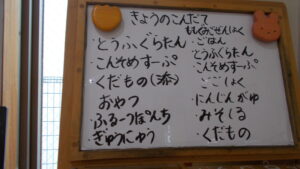 きょうのこんだて
・とうふぐらたん
・こんそめすーぷ
・くだもの(添)
おやつ
・ふるーつぽんち
・ぎゅうにゅう
・ごはん
・とうふぐらたん
・こんそめすーぷ
・にんじんがゆ
・みそしる
・くだもの